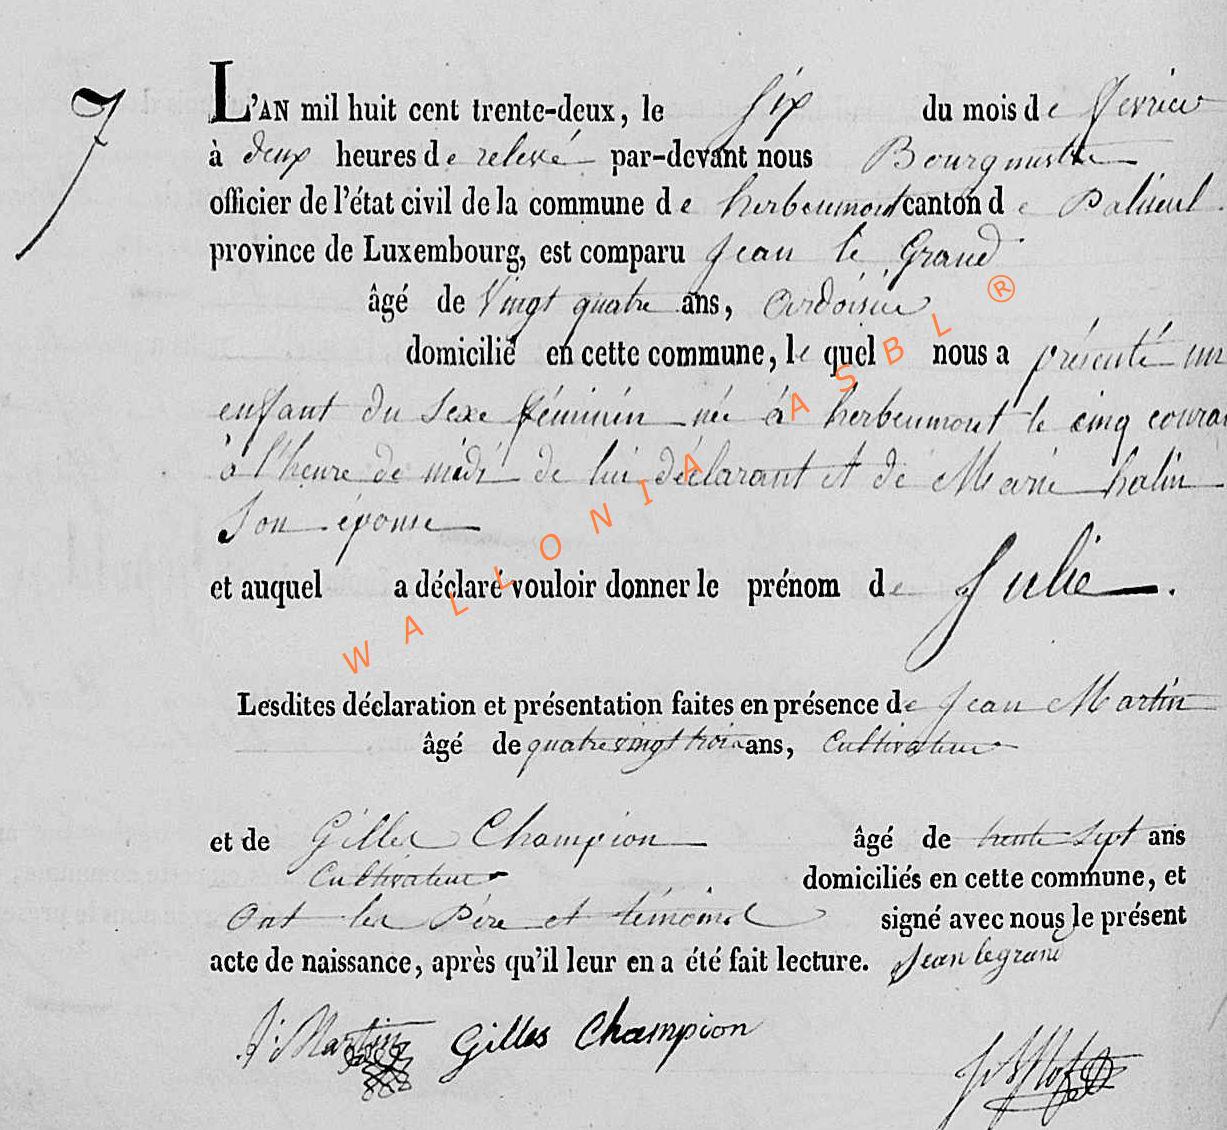 7
L'AN mil huit cent trente-deux, le six du mois de fevrier
à deux heures de relevé par-devant nous Bourgmestre
officier de l'état civil de la commune de herbeumont canton de Paliseul
province de Luxembourg, est comparu jean le Grand
âgé de Vingt quatre ans, Ardoisier
domicilié en cette commune, le quel nous a présenté un
enfant du sexe féminin née à herbeumont le cinq couran
à l'heure de midi de lui déclarant et de Marie halin
son épouse
et auquel a déclaré vouloir donner le prénom de Julie.
Lesdites déclaration et présentation faites en présence de jean Martin
âgé de quatrevingt trois ans, Cultivateur
et de Gilles Champion âgé de trente sept ans
Cultivateur domiciliés en cette commune, et
Ont les Père et témoins signé avec nous le présent
acte de naissance, après qu'il leur en a été fait lecture. Jean legrand
J: Martin Gilles Champion
WALLONIA ASBL ®